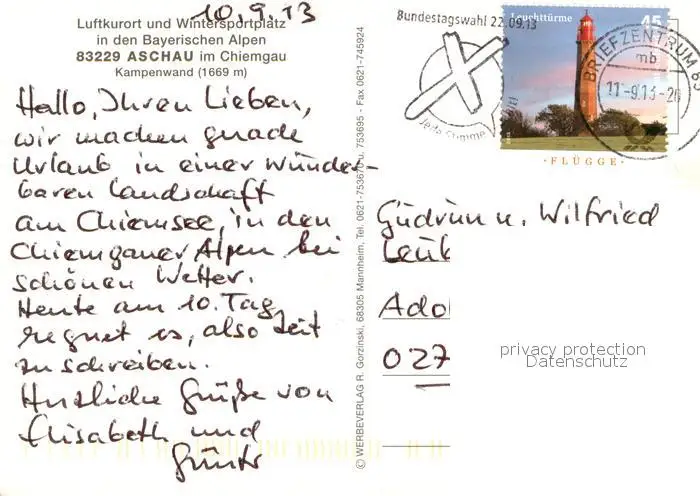 10.9.13
Luftkurort und Wintersportplatz
in den Bayerischen Alpen
83229 ASCHAU im Chiemgau
Kampenwand (1669 m)
Hallo, Ihren Lieben,
wir machen grade
Urlaub in einer wunder-
baren Landschaft
am Chiemsee, in den
Chiemgauer Alpen bei
schönen Wetter.
Heute am 10. Tag
regnet es, also Zeit
zu schreiben.
Herzliche Grüße von
Elisabeth und
Günter
© WERBEVERLAG R. Gorzinski, 68305 Mannheim, Tel. 0621-753670 u. 753695 - Fax 0621-745924
Bundestagswahl 22.09.13
Jede Stimme
Leuchttürme 45
FLÜGGE
BRIEFZENTRUM
mb
11-9.13-20
Gudrun u. Wilfried
Leuk
Adol
027
privacy protection
Datenschutz